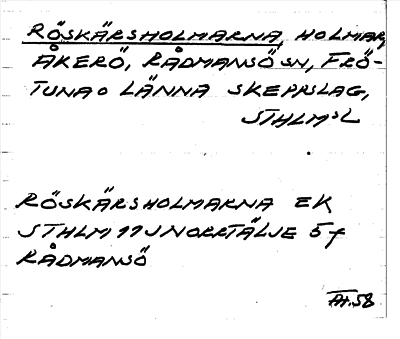 RÖSKÄRSHOLMARNA, HOLMAR,
ÅKERÖ, RÅDMANSÖ SN, FRÖ-
TUNA O LÄNNA SKEPPSLAG,
STHLMS L
RÖSKÄRSHOLMARNA EK
STHLM 11J NORRTÄLJE 5f
RÅDMANSÖ
AH.58